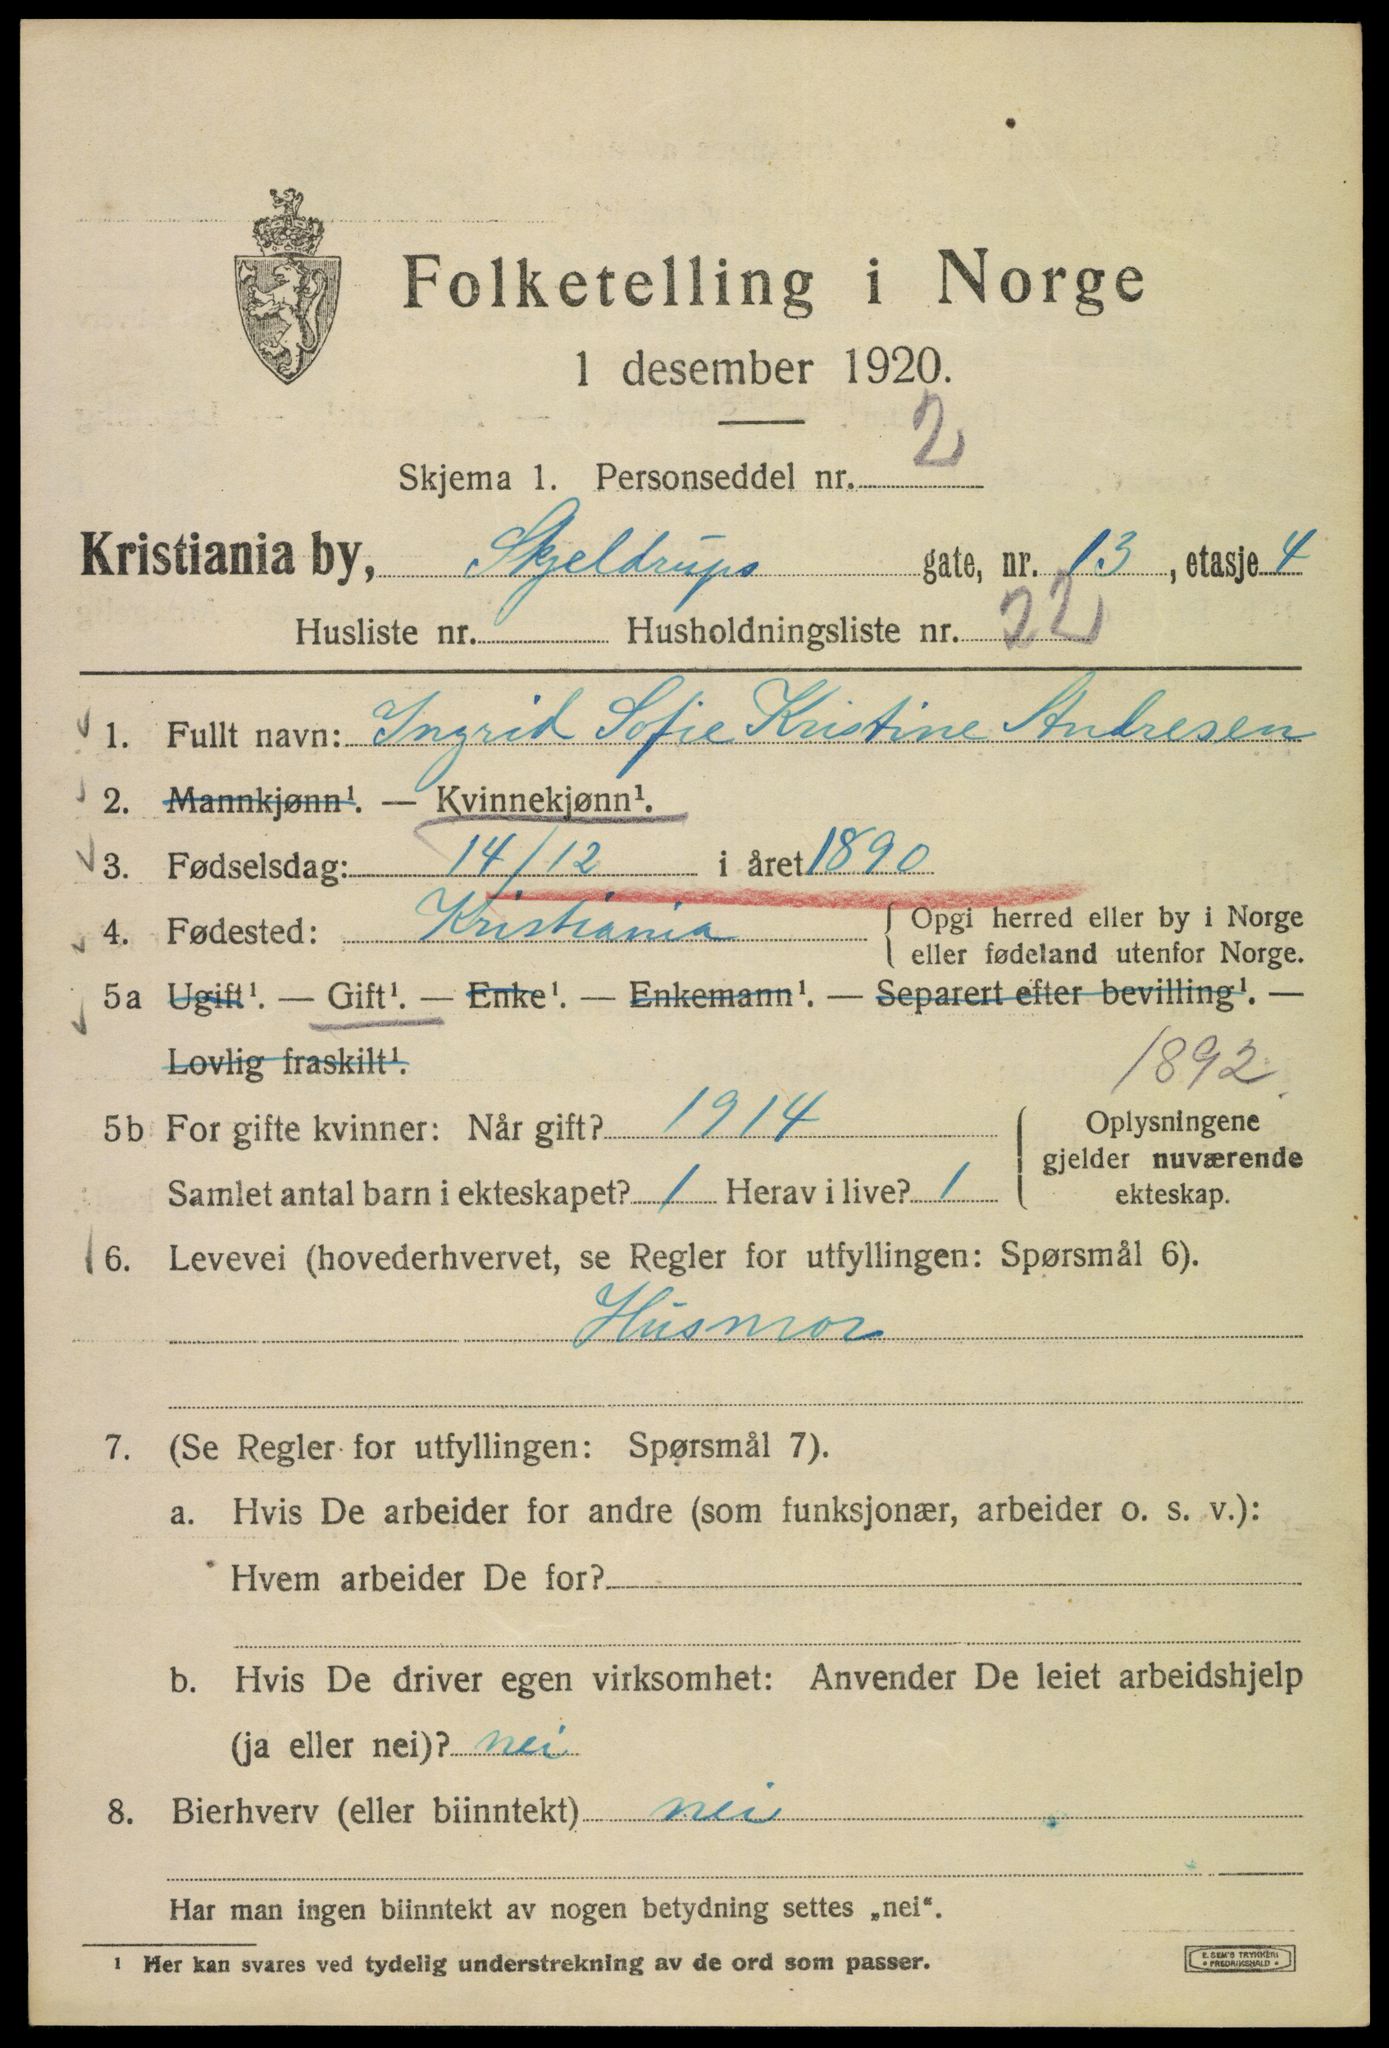 Folketelling i Norge
1 desember 1920.
Skjema 1. Personseddel nr. 2
Kristiania by, Skjeldrups gate, nr. 13, etasje 4
Husliste nr. Husholdningsliste nr. 22
1. Fullt navn: Ingrid Sofie Kristine Andresen
2. Mannkjønn¹. — Kvinnekjønn¹.
3. Fødselsdag: 14/12 i året 1890
4. Fødested: Kristiania { Opgi herred eller by i Norge
eller fødeland utenfor Norge.
5a Ugift¹. — Gift¹. — Enke¹. — Enkemann¹. — Separert efter bevilling¹. —
Lovlig fraskilt¹.
1892
5b For gifte kvinner: Når gift? 1914
Samlet antal barn i ekteskapet? 1 Herav i live? 1
Oplysningene
gjelder nuværende
ekteskap.
6. Levevei (hovederhvervet, se Regler for utfyllingen: Spørsmål 6).
Husmor
7. (Se Regler for utfyllingen: Spørsmål 7).
a. Hvis De arbeider for andre (som funksjonær, arbeider o. s. v.):
Hvem arbeider De for?
b. Hvis De driver egen virksomhet: Anvender De leiet arbeidshjelp
(ja eller nei)? nei
8. Bierhverv (eller biinntekt) nei
Har man ingen biinntekt av nogen betydning settes „nei“.
¹ Her kan svares ved tydelig understrekning av de ord som passer.
E. SEM'S TRYKKERI
• FREDRIKSHALD •